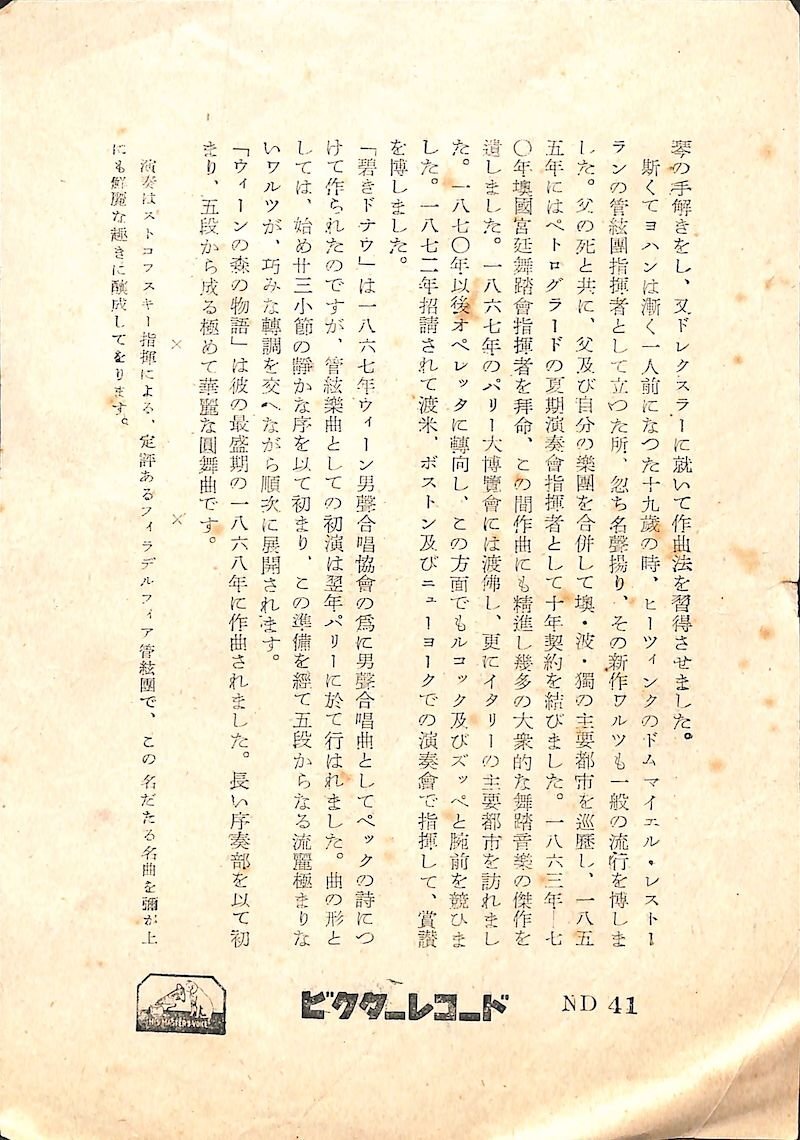 琴の手解きをし、又ドレクスラーに就いて作曲法を習得させました。
斯くてヨハンは漸く一人前になつた十九歳の時、ヒーツィンクのドムマイエル・レストー
ランの管絃團指揮者として立つた所、忽ち名聲揚り、その新作ワルツも一般の流行を博しま
した。父の死と共に、父及び自分の樂團を合併して墺・波・獨の主要都市を巡歴し、一八五
五年にはペトログラードの夏期演奏會指揮者として十年契約を結びました。一八六三年―七
〇年墺國宮廷舞踏會指揮者を拜命、この間作曲にも精進し幾多の大衆的な舞踏音樂の傑作を
遺しました。一八六七年のパリー大博覽會には渡佛し、更にイタリーの主要都市を訪れまし
た。一八七〇年以後オペレッタに轉向し、この方面でもルコック及びズッペと腕前を競ひま
した。一八七二年招請されて渡米、ボストン及びニューヨークでの演奏會で指揮して、賞讃
を博しました。
「碧きドナウ」は一八六七年ウィーン男聲合唱協會の爲に男聲合唱曲としてベックの詩につ
けて作られたのですが、管絃樂曲としての初演は翌年パリーに於て行はれました。曲の形と
しては、始め廿三小節の靜かな序を以て初まり、この準備を經て五段からなる流麗極まりな
いワルツが、巧みな轉調を交へながら順次に展開されます。
「ウィーンの森の物語」は彼の最盛期の一八六八年に作曲されました。長い序奏部を以て初
まり、五段から成る極めて華麗な圓舞曲です。
× ×
演奏はストコフスキー指揮による、定評あるフィラデルフィア管絃團で、この名だたる名曲を彌が上
にも鮮麗な趣きに釀成してをります。
HIS MASTER'S VOICE
ビクターレコード
ND 41